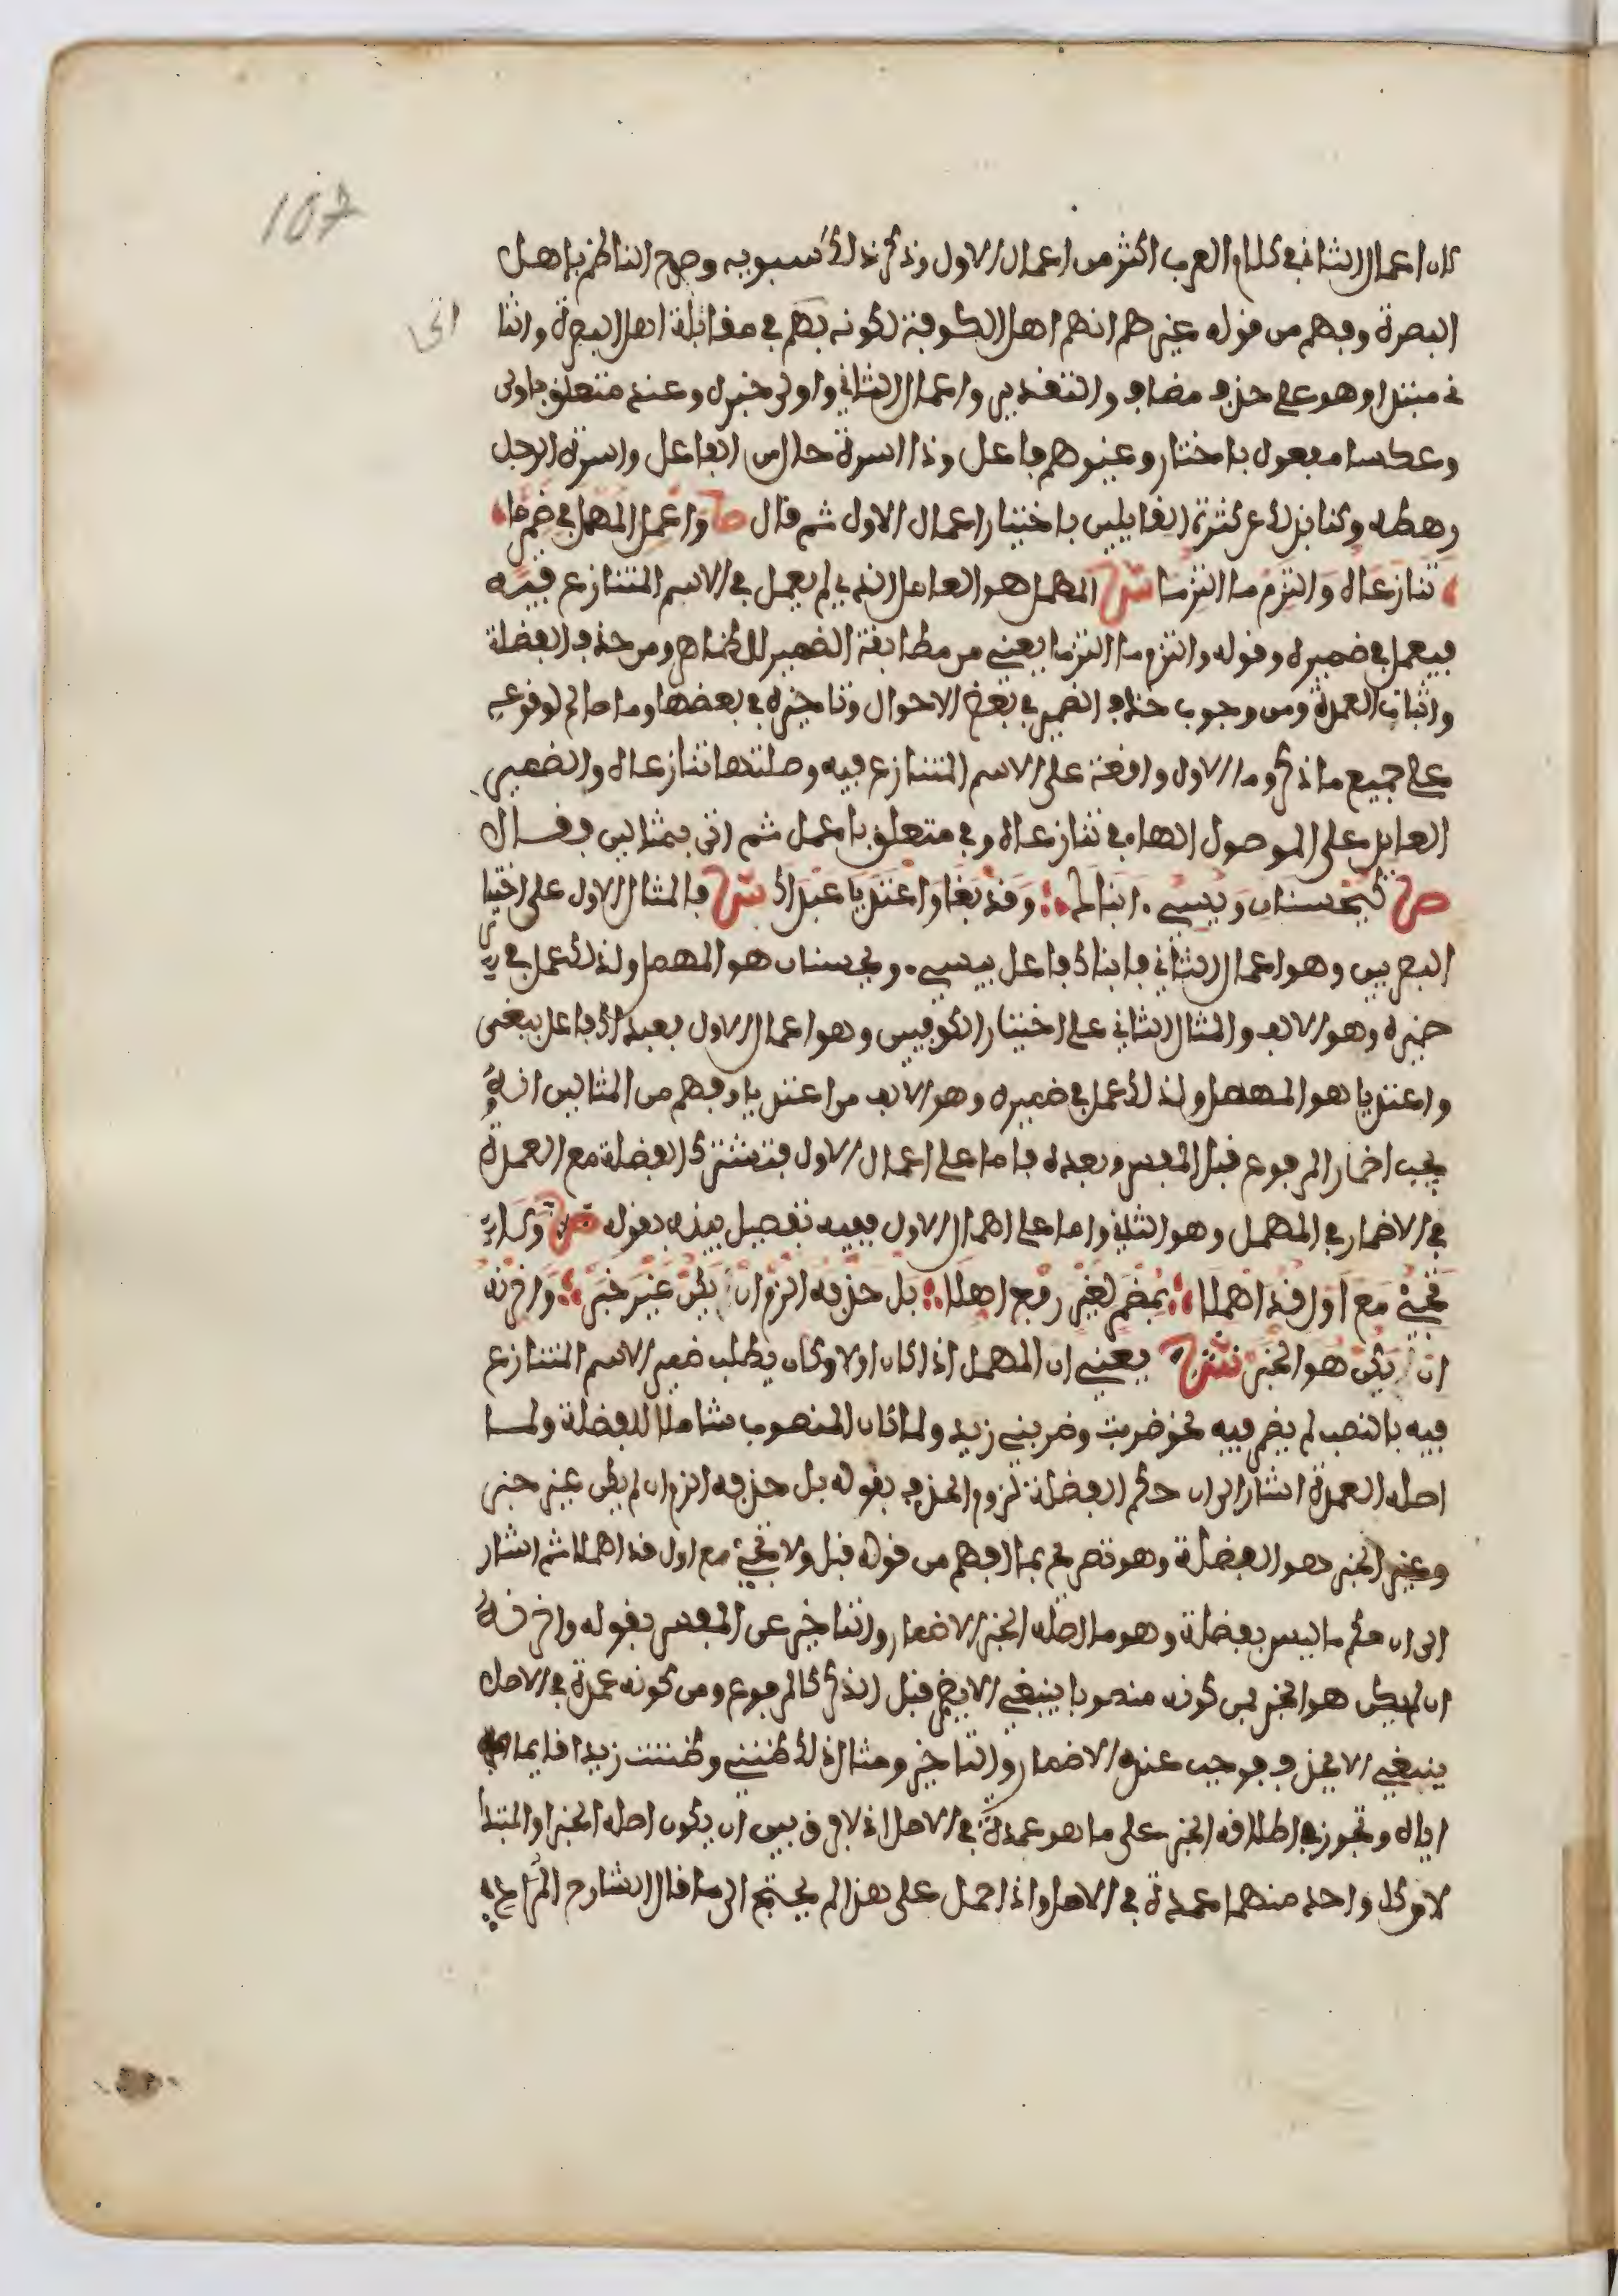 107
لان اعمال الثاني في كلام العرب اكثر من اعمال الاول وذكر ذلك سيبويه وصرح الناظم باهل
البصرة وفهم من قوله غيرهم انهم اهل الكوفة لكونه بهم في مقابلة اهل البصرة والثا
ني مبتدا وهو على حذف مضاف والتقدير واعمال الثاني واولى خبره وعند متعلق باولى
وعكسا مفعول باختار وغيرهم فاعل وذا اسرة حال من الفاعل واسرة الرجل
رهطه وكنا بذلك عن كثرة القايلين باختيار اعمال الاول ثم قال ص واعمل المهمل في ضمير ما
تنازعاه والتزم ما التزما ش المهمل هو العامل الذي لم يعمل في الاسم المتنازع فيه
فيعمل في ضميره وقوله والتزم ما التزما يعني من مطابقة الضمير للظاهر ومن حذف الفضلة
واثبات العمدة ومن وجوب حذف الضمير في بعض الاحوال وتاخيره في بعضها وما صالح لوقوعه
على جميع ما ذكر وما الاول واقعة على الاسم المتنازع فيه وصلتها تنازعاه والضمير
العايد على الموصول الهاء في تنازعاه وفي متعلق باعمل ثم اتى بمثالين فقال
ص كيحسنان ويسيء ابناك وقد بغا واعتديا عبداك ش فالمثال الاول على اختيار
البصريين وهو اعمال الثاني فابناك فاعل بيسيء ويحسنان هو المهمل ولذلك عمل في
ضميره وهو الالف والمثال الثاني على اختيار الكوفيين وهو اعمال الاول فعبداك فاعل ببغى
واعتديا هو المهمل ولذلك عمل في ضميره وهو الالف من اعتديا وفهم من المثالين انه
يجب اضمار المرفوع قبل المفسر وبعده فاما على اعمال الاول فتشترك الفضلة مع العمدة
في الاضمار في المهمل وهو الثاني واما على اهمال الاول ففيه تفصيل بينه بقوله ص ولا
تجيء مع اول قد اهملا بمضمر لغير رفع اهلا بل حذفه الزم ان يكن غير خبر واخرنه
ان يكن هو الخبر ش يعني ان المهمل اذا كان اولا وكان يطلب ضمير الاسم المتنازع
فيه بالنصب لم يضمر فيه نحو ضربت وضربني زيد ولما كان المنصوب شاملا للفضلة ولما
اصله العمدة اشار الى ان حكم الفضلة لزوم الحذف بقوله بل حذفه الزم ان لم يكن غير خبر
وغير الخبر هو الفضلة وهو تصريح بما افهم من قوله قبل ولا تجيء مع اول قد اهملا ثم اشار
الى ان حكم ما ليس بفضلة وهو ما اصله الخبر الاضمار والتاخير عن المفسر بقوله واخرنه
ان يكن هو الخبر فمن كونه منصوبا ينبغي الا يضمر قبل الذكر كالمرفوع ومن كونه عمدة في الاصل
ينبغي الا يحذف فوجب عنده الاضمار والتاخير ومثال ذلك ظنني وظننت زيدا قايما
اياه وتجوز في اطلاقه الخبر على ما هو عمدة في الاصل اذ لا فرق بين ان يكون اصله الخبر او المبتدا
لان كل واحد منهما عمدة في الاصل واذا حمل على هذا لم يحتج الى ما قال الشارح المرادي